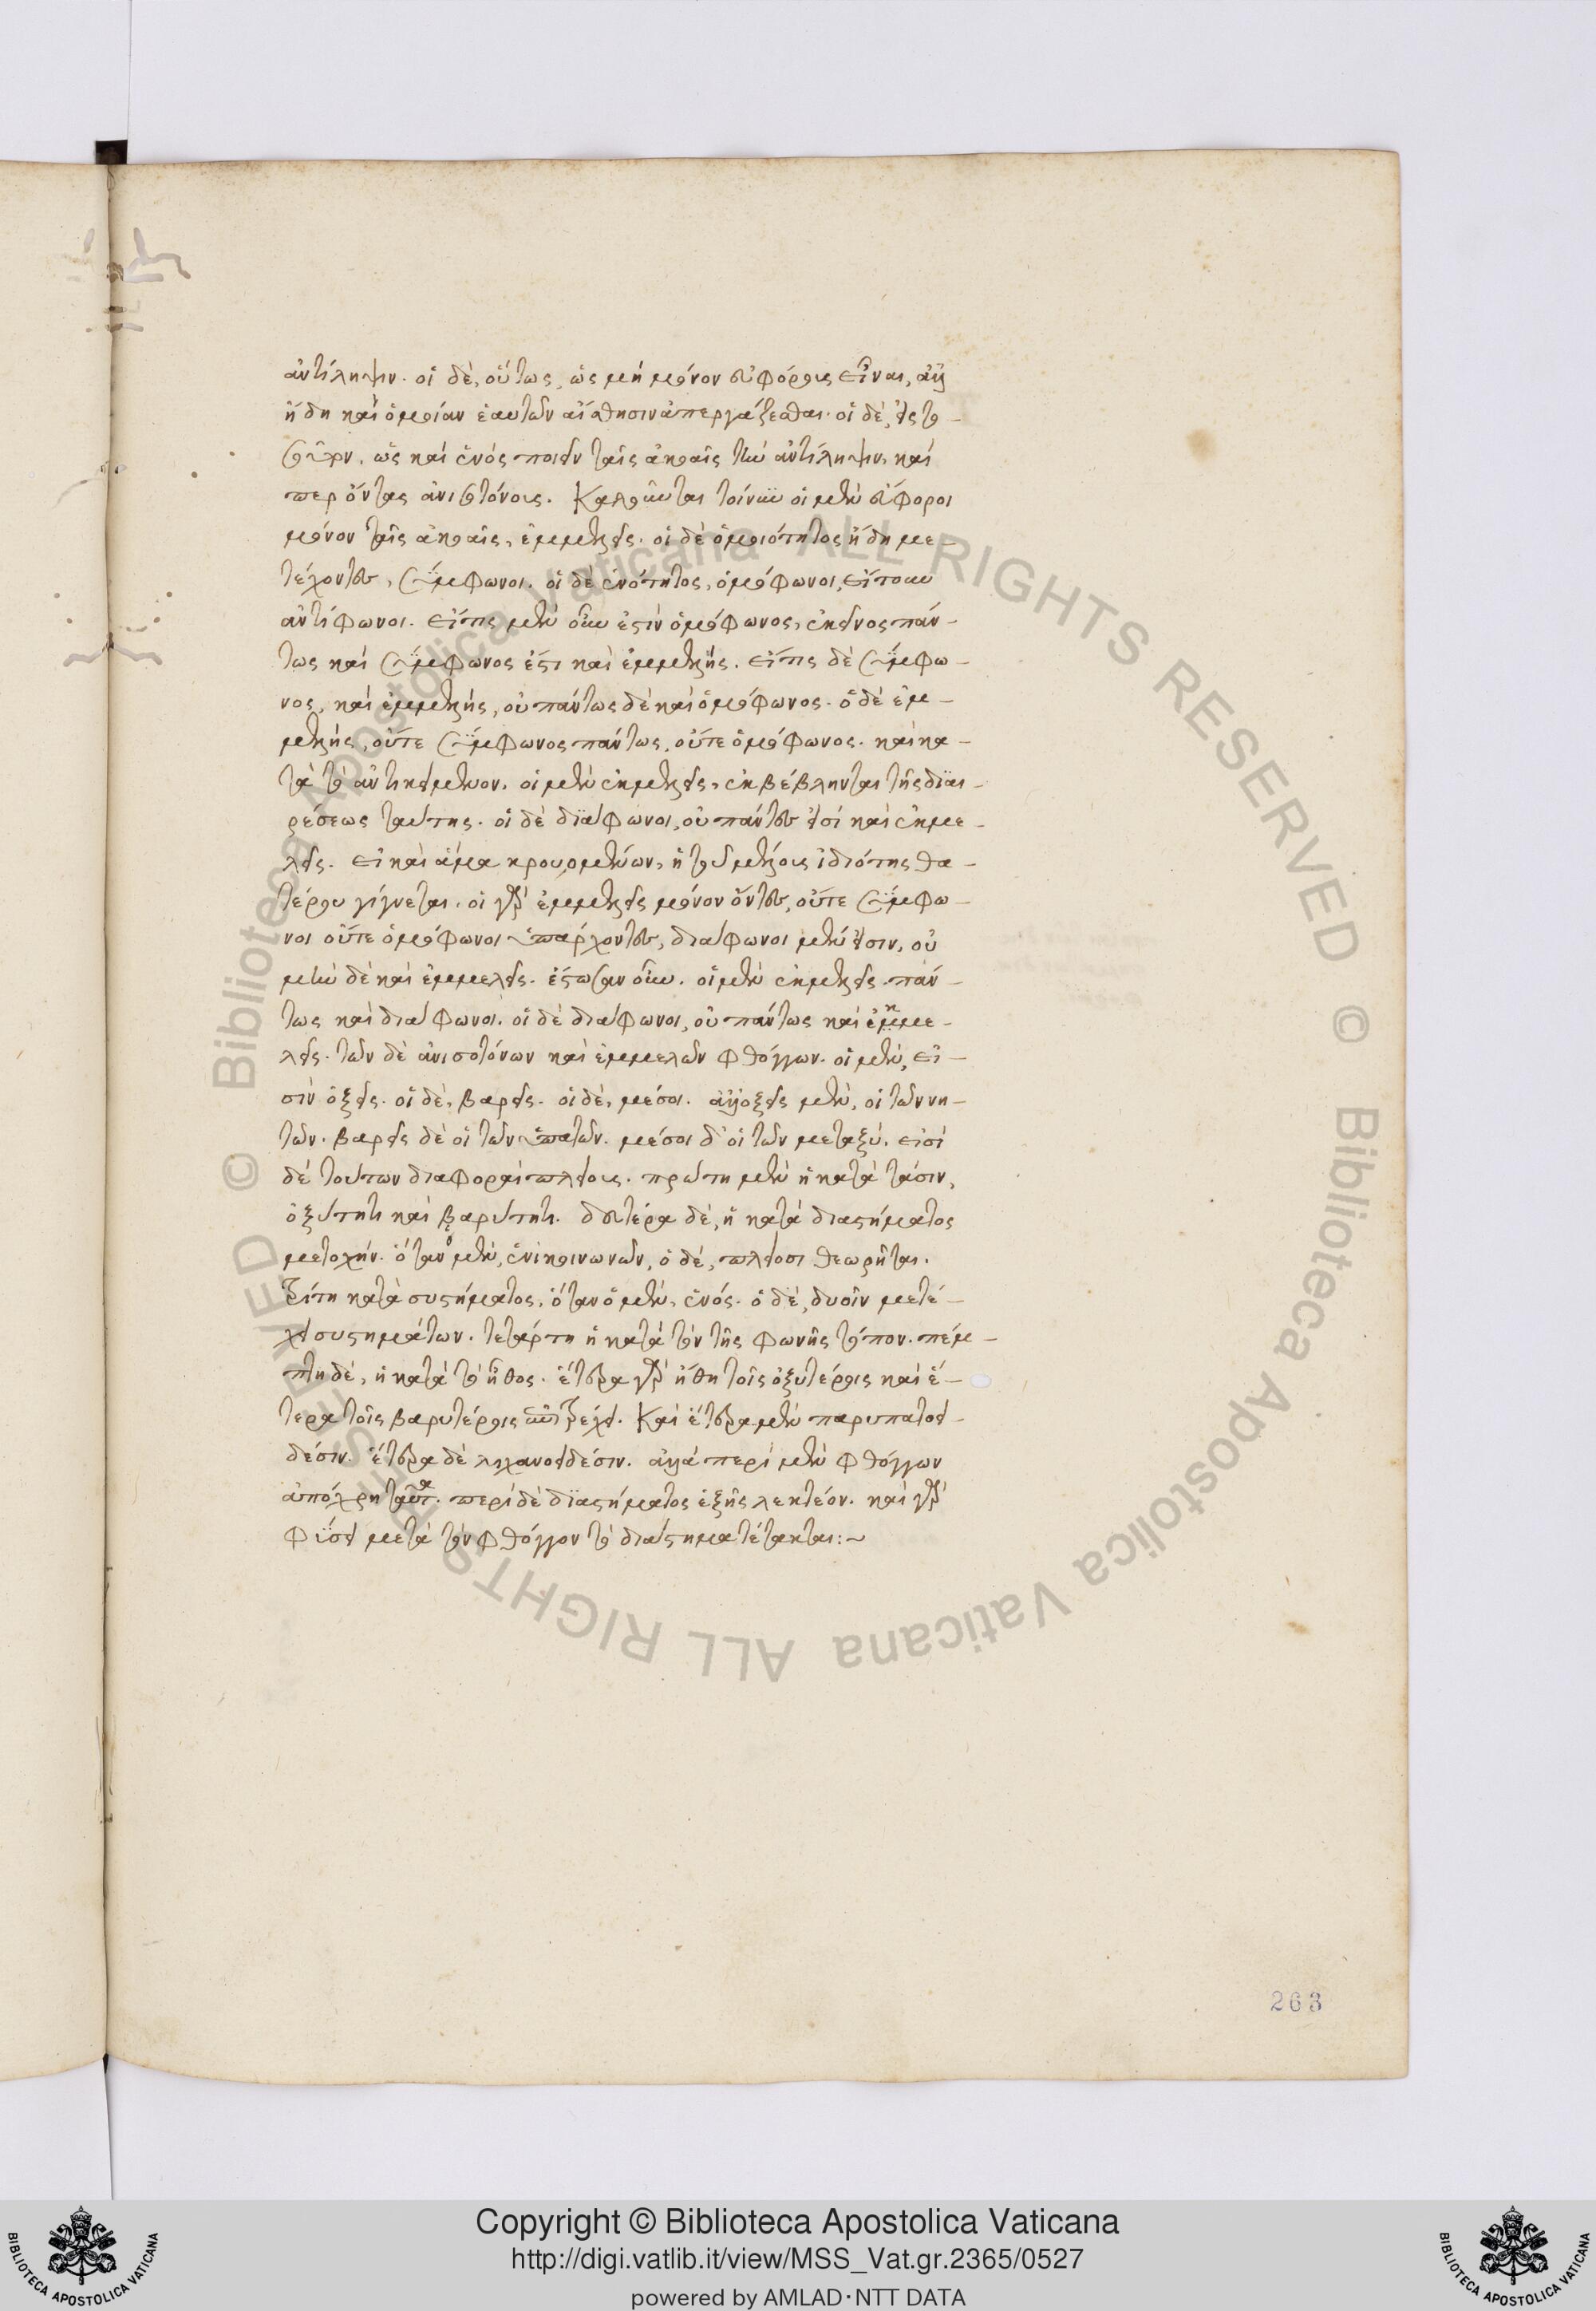 ἀντίληψιν. οἱ δὲ, οὕτως, ὡς μὴ μόνον εὐφόρους εἶναι, ἀλλ'
ἤδη καὶ ὁμοίαν ἑαυτῶν αἴσθησιν ἀπεργάζεσθαι. οἱ δὲ, εἰς το-
σοῦτον, ὡς καὶ ἑνὸς ποιεῖν ταῖς ἀκοαῖς τὴν ἀντίληψιν, καί
περ ὄντας ἀνισοτόνους. Καλοῦνται τοίνυν οἱ μὲν εὔφοροι
μόνον ταῖς ἀκοαῖς, ἐμμελεῖς. οἱ δὲ ὁμοιότητος ἤδη με-
τέχοντες, σύμφωνοι. οἱ δὲ ἑνότητος, ὁμόφωνοι, εἴτουν
ἀντίφωνοι. εἴτις μὲν οὖν ἐστὶν ὁμόφωνος, ἐκεῖνος πάν-
τως καὶ σύμφωνος ἐστι καὶ ἐμμελής. εἴτις δὲ σύμφω-
νος, καὶ ἐμμελής, οὐ πάντως δὲ καὶ ὁμόφωνος. ὁ δὲ ἐμ-
μελής, οὔτε σύμφωνος πάντως, οὔτε ὁμόφωνος. καὶ κα-
τὰ τὸ ἀντικείμενον. οἱ μὲν ἐκμελεῖς, ἐκβέβληνται τῆς διαι-
ρέσεως ταύτης. οἱ δὲ διάφωνοι, οὐ πάντες εἰσὶ καὶ ἐκμε-
λεῖς. εἰ καὶ ἅμα κρουομένων, ἡ τοῦ μέλους ἰδιότης θα-
τέρου γίγνεται. οἱ γὰρ ἐμμελεῖς μόνον ὄντες, οὔτε σύμφω-
νοι οὔτε ὁμόφωνοι ὑπάρχοντες, διάφωνοι μέν εἰσιν, οὐ
μὴν δὲ καὶ ἐμμελεῖς. ἔστωσαν οὖν. οἱ μὲν ἐκμελεῖς πάν-
τως καὶ διάφωνοι. οἱ δὲ διάφωνοι, οὐ πάντως καὶ ἐκμμε-
λεῖς. τῶν δὲ ἀνισοτόνων καὶ ἐμμελῶν φθόγγων. οἱ μὲν, εἰ-
σὶν ὀξεῖς. οἱ δὲ, βαρεῖς. οἱ δὲ, μέσοι. ἀλλ' ὀξεῖς μὲν, οἱ τῶν νη-
τῶν. βαρεῖς δὲ οἱ τῶν ὑπατῶν. μέσοι δ' οἱ τῶν μεταξύ. εἰσὶ
δὲ τούτων διαφοραὶ πλείους. πρώτη μὲν ἡ κατὰ τάσιν,
ὀξύτητι καὶ βαρύτητι. δευτέρα δὲ, ἡ κατὰ διαστήματος
μετοχήν. ὅταν ὁ μὲν, ἑνὶ κοινωνῶν, ὁ δὲ, πλείοσι θεωρῆται.
τρίτη κατὰ συστήματος, ὅταν ὁ μὲν, ἑνός. ὁ δὲ, δυοῖν μετέ-
χει συστημάτων. τετάρτη ἡ κατὰ τὸν τῆς φωνῆς τόπον. πέμ-
πτη δὲ, ἡ κατὰ τὸ ἦθος. ἕτερα γὰρ ἤθη τοῖς ὀξυτέροις καὶ ἕ-
τερα τοῖς βαρυτέροις ἐπιτρέχει. Καὶ ἕτερα μὲν παρυπατοει-
δέσιν. ἕτερα δὲ λιχανοειδέσιν. ἀλλὰ περὶ μὲν φθόγγων
ἀπόχρη ταῦτα. περὶ δὲ διαστήματος ἑξῆς λεκτέον. καὶ γὰρ
φύσει μετὰ τὸν φθόγγον τὸ διάστημα τέτακται:~
263
Copyright © Biblioteca Apostolica Vaticana
http://digi.vatlib.it/view/MSS_Vat.gr.2365/0527
powered by AMLAD·NTT DATA
BIBLIOTECA APOSTOLICA VATICANA
BIBLIOTECA APOSTOLICA VATICANA
© Biblioteca Apostolica Vaticana ALL RIGHTS RESERVED © Biblioteca Apostolica Vaticana ALL RIGHTS RESERVED